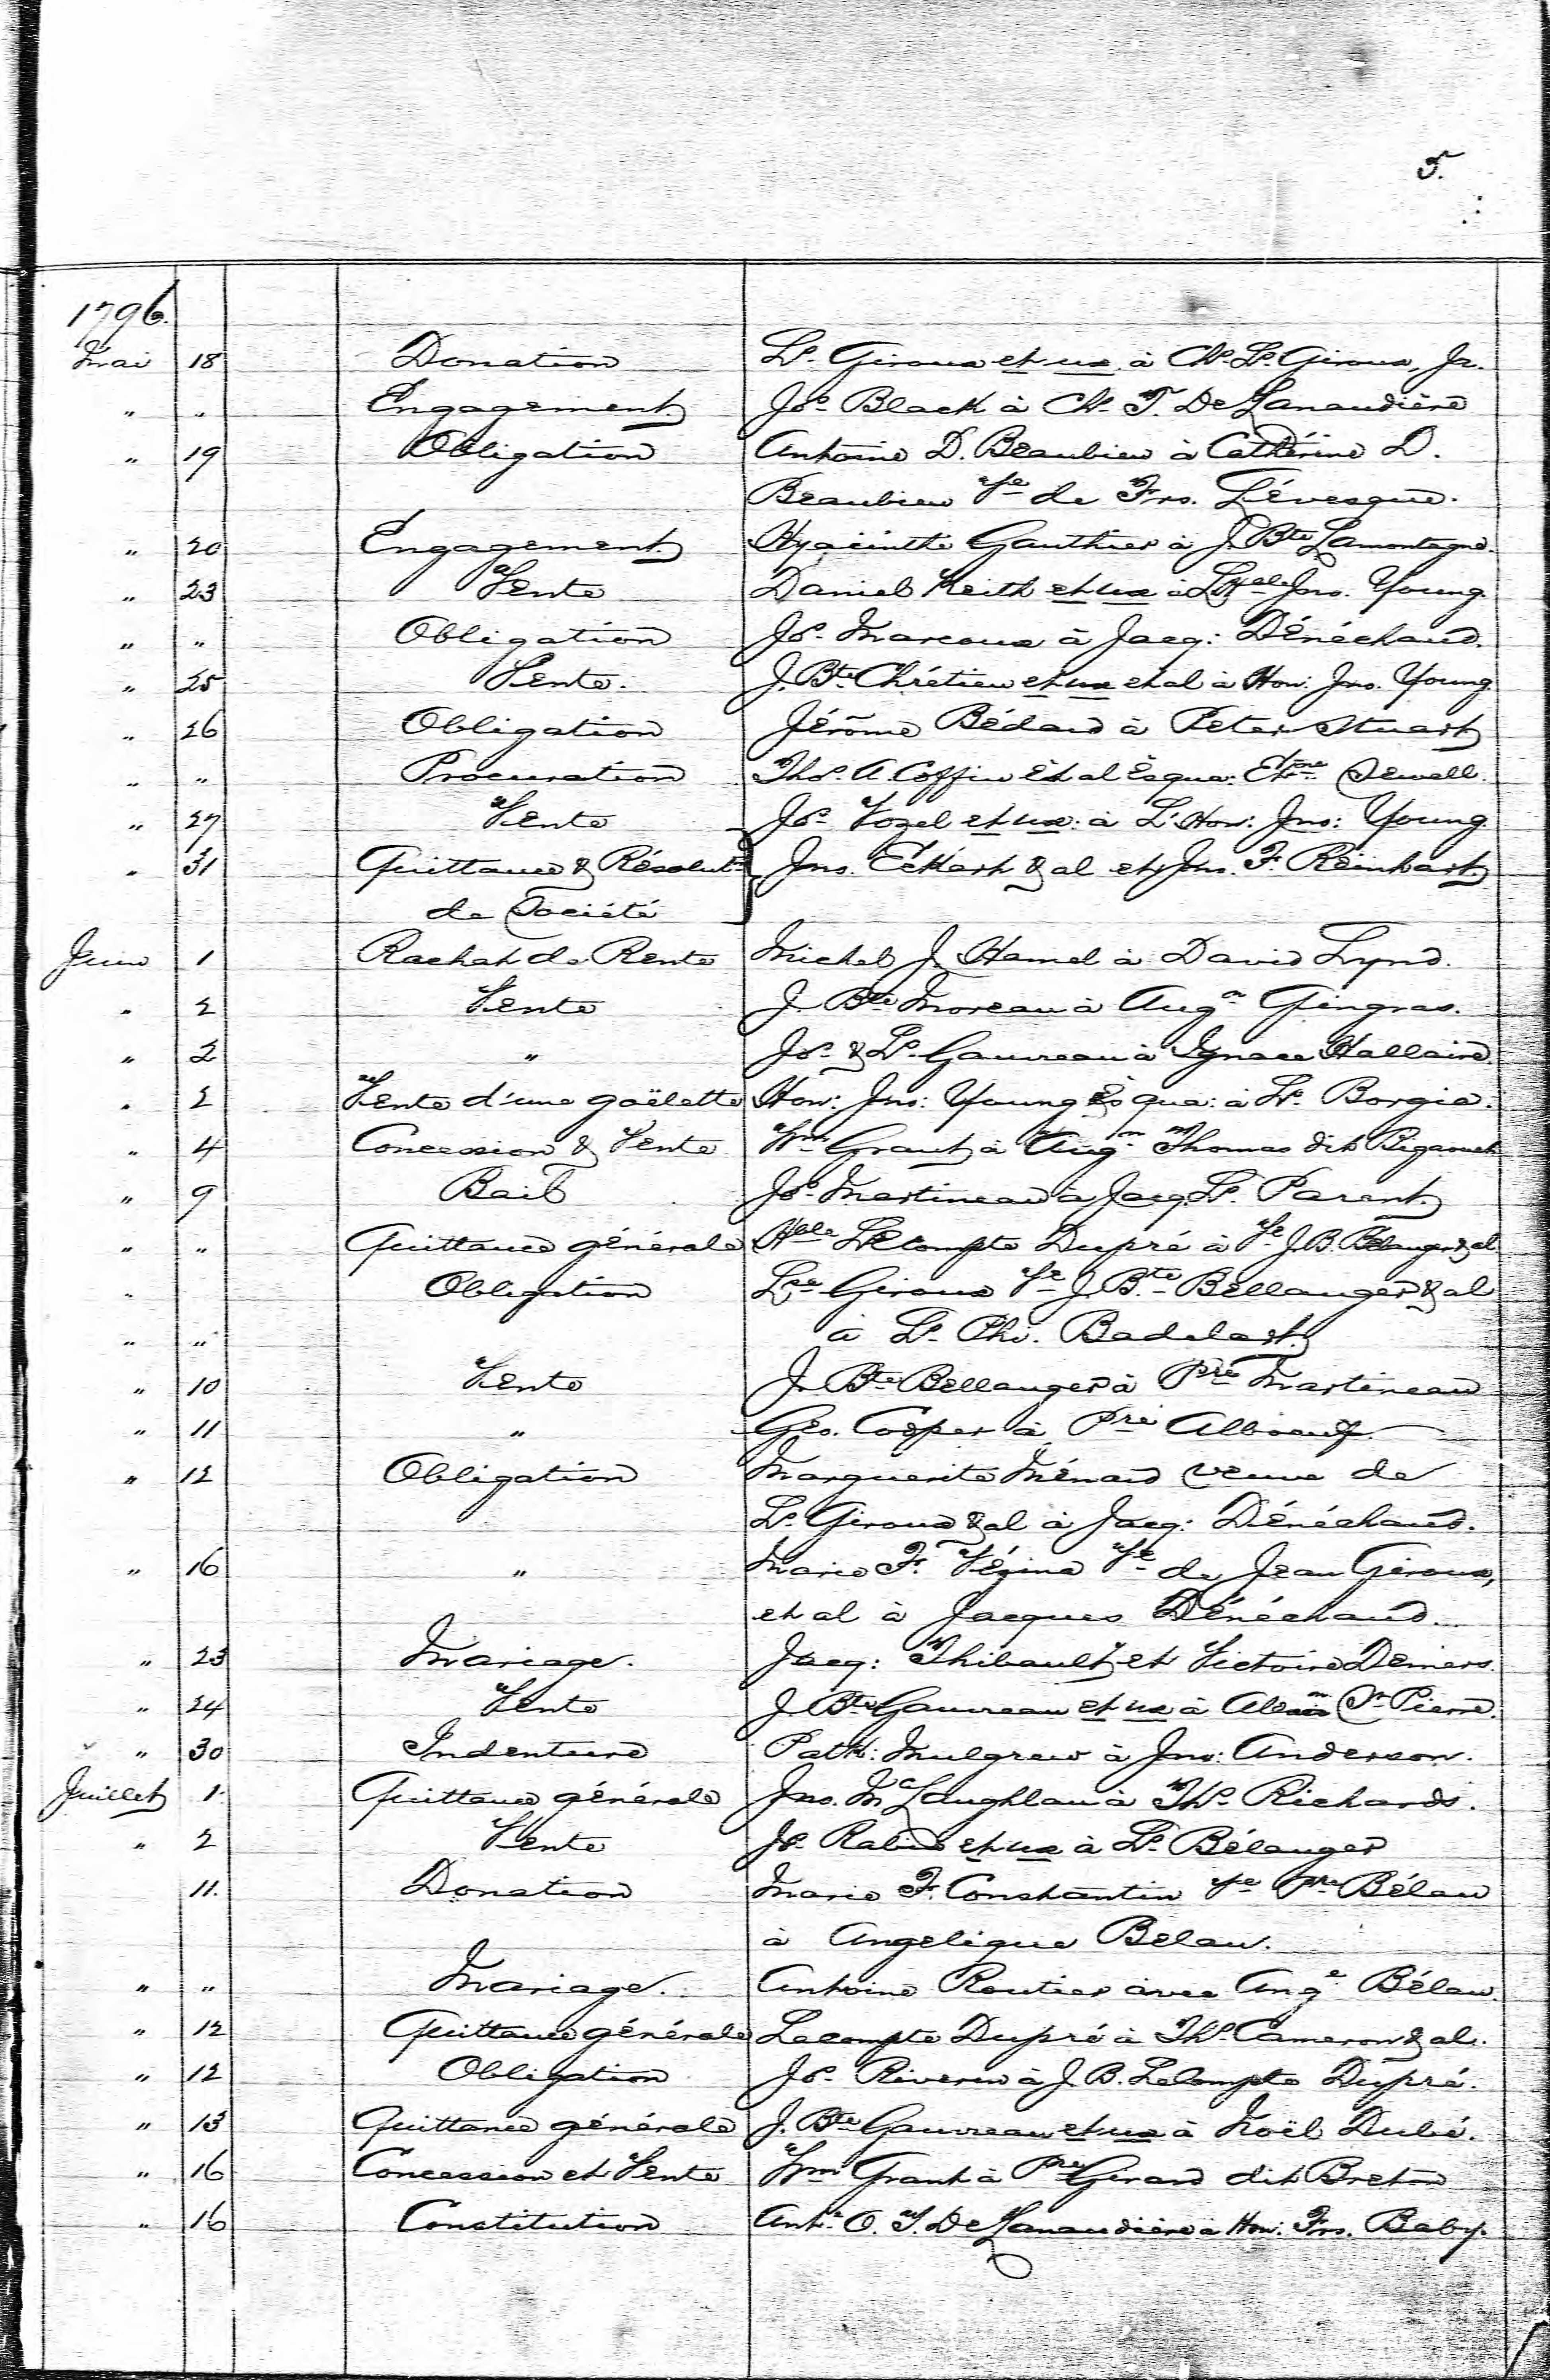 5.
1796.
Mai 18 Donation Ls. Giroux et ux. à Chs. Ls. Giroux, Jr.
" " Engagement Jos. Black à Chs. T. De Lanaudière
" 19 Obligation Antoine D. Beaubien à Catherine D.
Beaubien Ve de Frs. Lévesque.
" 20 Engagement Hyacinthe Gauthier à J. Bte Lamontagne.
" 23 Vente Daniel Keith et ux à Jno. Young.
" " Obligation Js. Marcoux à Jacq: Dénéchaud.
" 25 Vente. J. Bte Chrétien et ux et al à Hon: Jno. Young.
" 26 Obligation Jérôme Bédard à Peter Stuart
" " Procuration Thos. A. Coffin Es qua: Sewell.
" 27 Vente Js. Vozel et ux: à L'Hon: Jno: Young.
" 31 Quittance & Résolutn Jno. Eckart & al et Jno. F. Reinhart
de Société
Juin 1 Rachat de Rente Michel J. Hamel à David Lynd.
" 2 Vente J. Bte Moreau à Augn Gingras.
" 2 " Js. & Ls. Gauvreau à Ignace Hallaire.
" 2 Vente d'une goëlette Hon: Jno: Young Es qua: à Ls. Borgia.
" 4 Concession & Vente Wm Grant à Augn Thomas dit Bigaouet
" 9 Bail Js. Martineau à Jacq. Ls. Parent.
" " Quittance générale Hble LeCompte Dupré à Ve J. B. Bélanger & al.
" Obligation Lse Giroux Ve J. Bte Bellanger & al
" " à Ls. Phi. Badelart.
" 10 Vente J. Bte Bellanger à Pre Martineau
" 11 " Geo. Cooper à Pre Alboeuf.
" 12 Obligation Marguerite Ménard veuve de
Ls. Giroux & al à Jacq: Dénéchaud.
" 16 " Marie F. Vézina Ve de Jean Giroux,
et al à Jacques Dénéchaud.
" 23 Mariage. Jacq: Thibault et Victoire Demers.
" 24 Vente J. Bte Gauvreau et ux à St Pierre.
" 30 Indenture Patk: Mulgrew à Jno: Anderson.
Juillet 1. Quittance générale Jno. McLaughlan à Ths. Richards.
" 2 Vente Js. Rabin et ux à Ls. Bélanger
11. Donation Marie F. Constantin Ve Pre Bélau
à Angelique Belau.
" " Mariage. Antoine Routier avec Ange Bélau.
" 12 Quittance générale Lecompte Dupré à Ths. Cameron & al.
" 12 Obligation Js. Riverin à J. B. LeCompte Dupré.
" 13 Quittance générale J. Bte Gauvreau et ux à Noël Dubé.
" 16 Concession et Vente Wm Grant à Pre Girard dit Breton
" 16 Constitution Ante O. T. De Lanaudière à Hon: Frs. Baby.